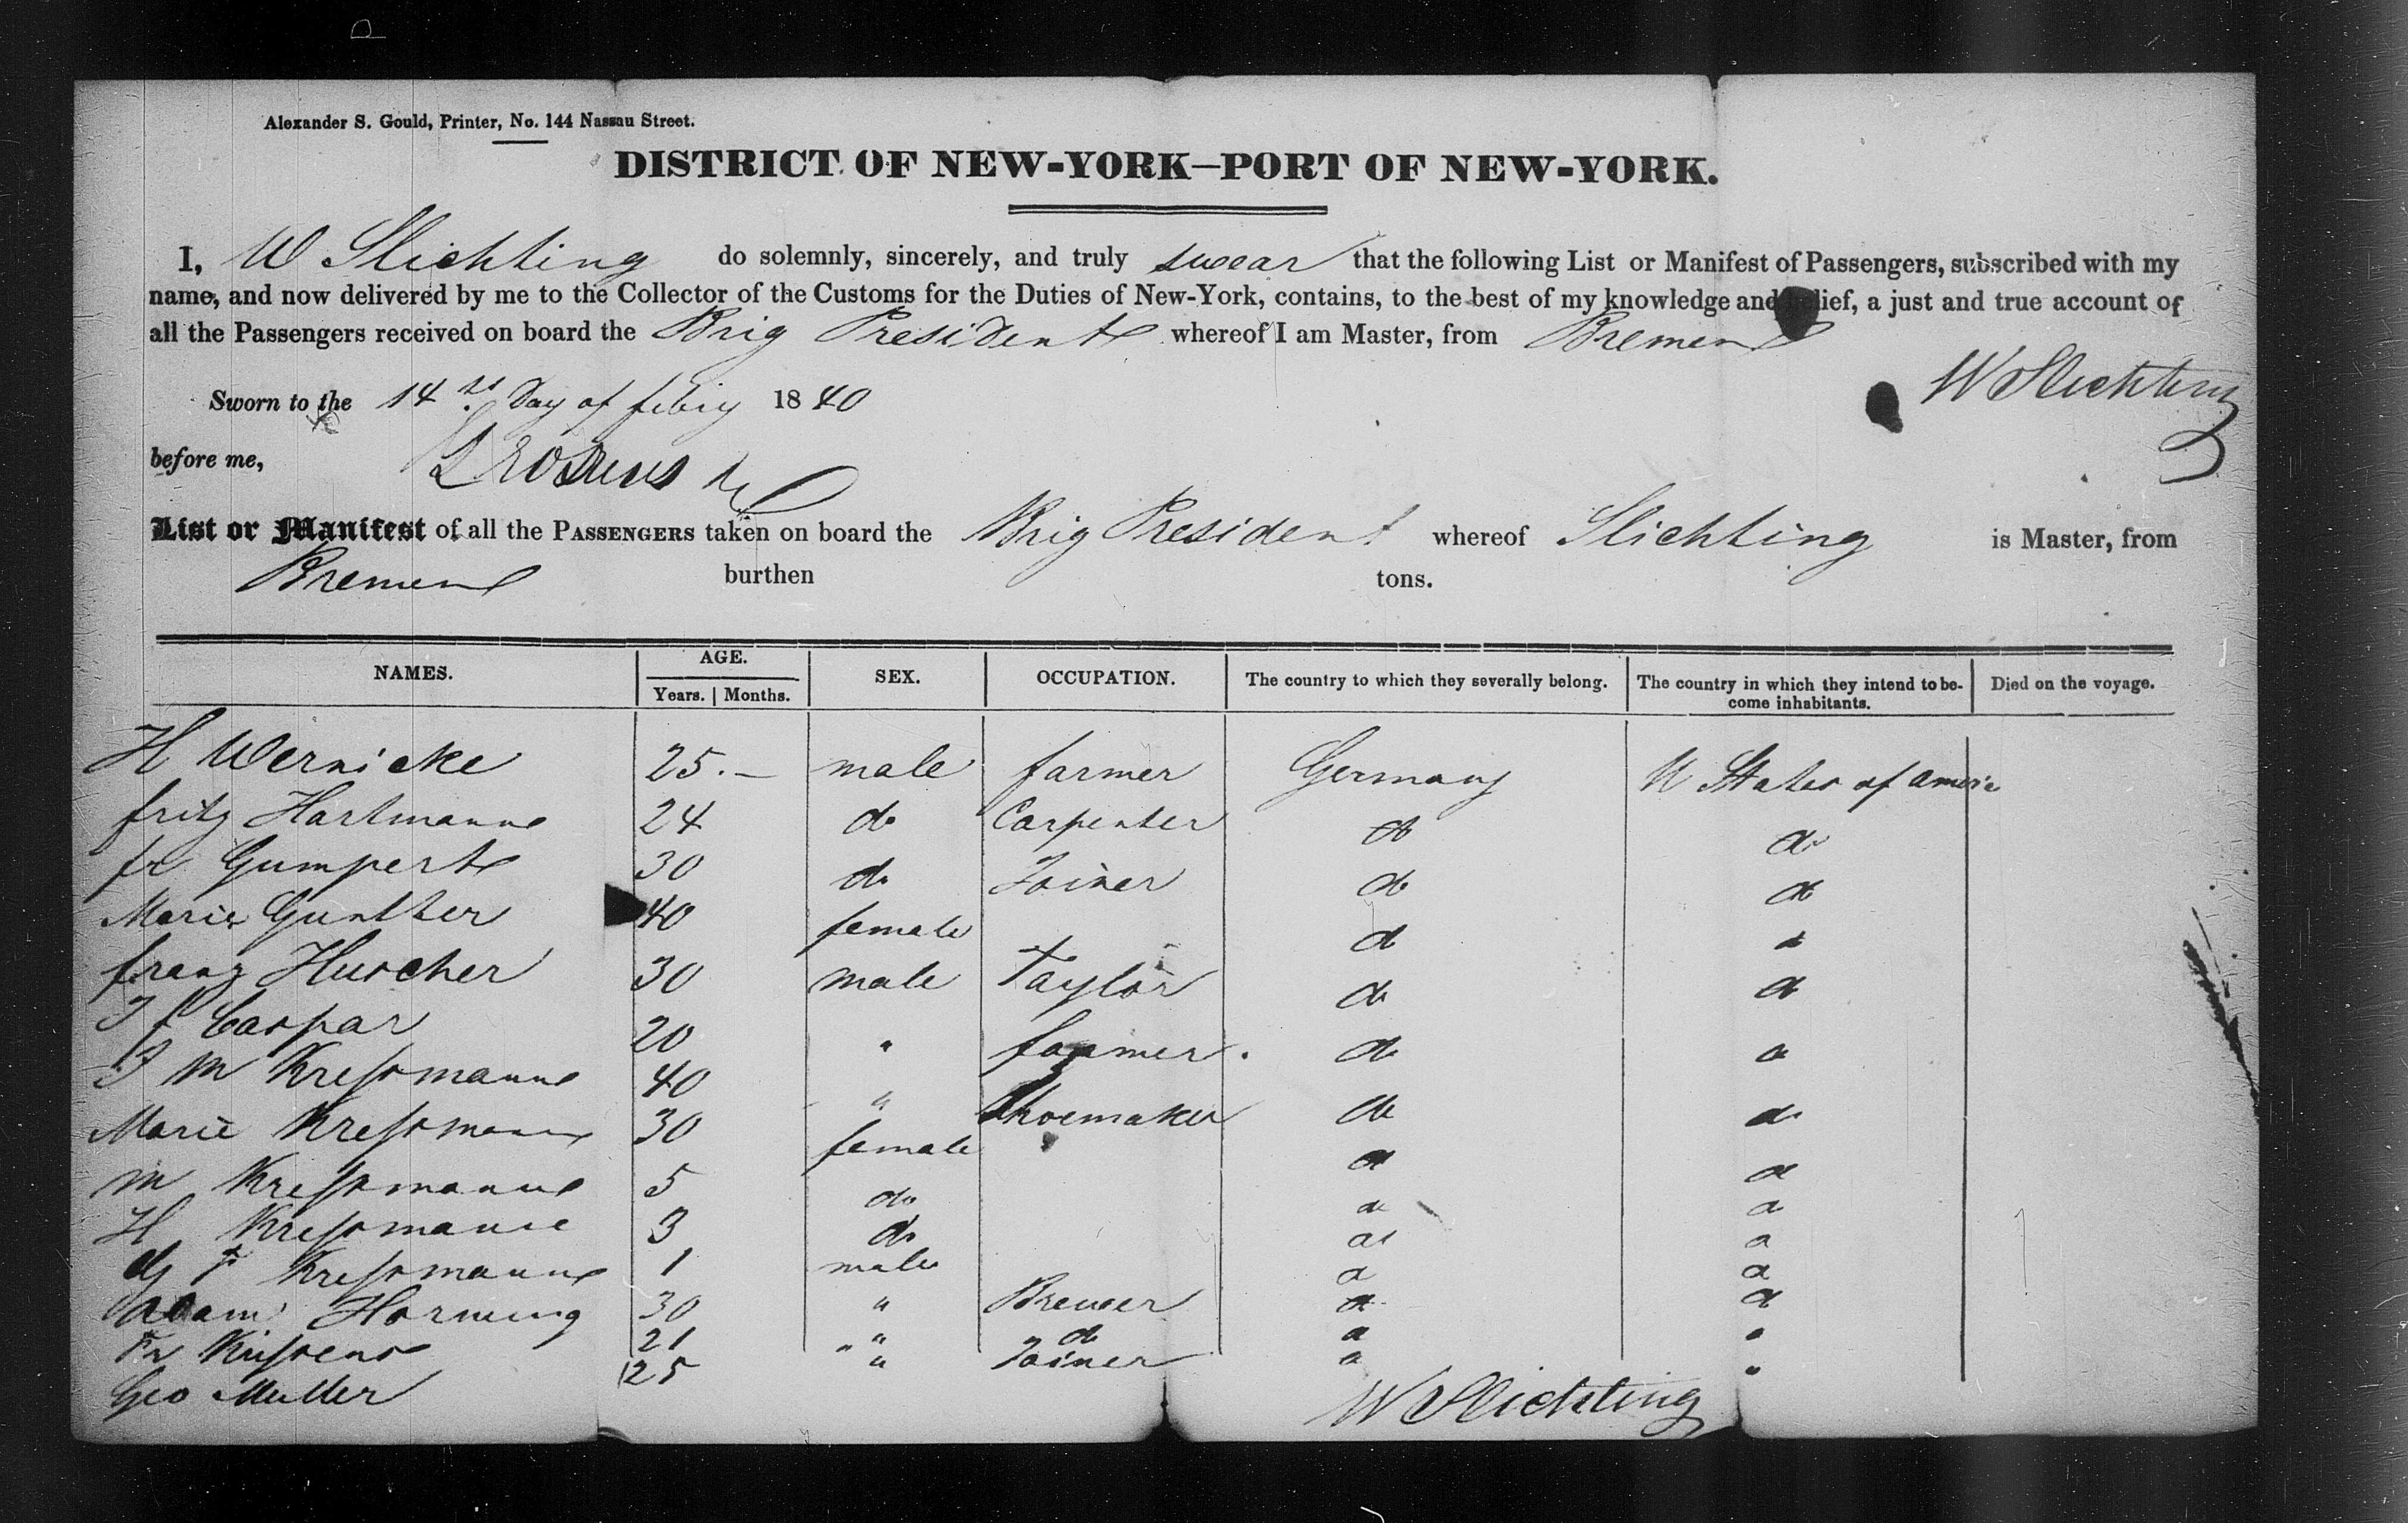 Alexander S. Gould, Printer, No. 144 Nassau Street.
DISTRICT OF NEW-YORK—PORT OF NEW-YORK.
I, W Slichting do solemnly, sincerely, and truly swear that the following List or Manifest of Passengers, subscribed with my
name, and now delivered by me to the Collector of the Customs for the Duties of New-York, contains, to the best of my knowledge and belief, a just and true account of
all the Passengers received on board the Brig President whereof I am Master, from Bremen
W Slichting
Sworn to the 14 Day of 1840
before me,
List or Manifest of all the PASSENGERS taken on board the Brig President whereof Slichting is Master, from
Bremen burthen tons.
NAMES. AGE. SEX. OCCUPATION. The country to which they severally belong. The country in which they intend to be- Died on the voyage.
Years. Months. come inhabitants.
H Wernicke 25.— male farmer Germany U States of
fritz Hartmann 24 do Carpenter do do
fr Gumpert 30 do Joiner do do
Marie Gunther 40 female do do
franz Huscher 30 male Taylor do do
J f Caspar 20 " farmer. do do
J M Kressmann 40 " Shoemaker do do
Marie Kressmann 30 female do do
M Kressmann 5 do do do
H Kressmann 3 do do do
F Kressmann 1 male do do
Adam Hornung 30 " Brewer do do
Fr 21 " " do do "
Geo Muller 25 " Joiner do "
W Slichting